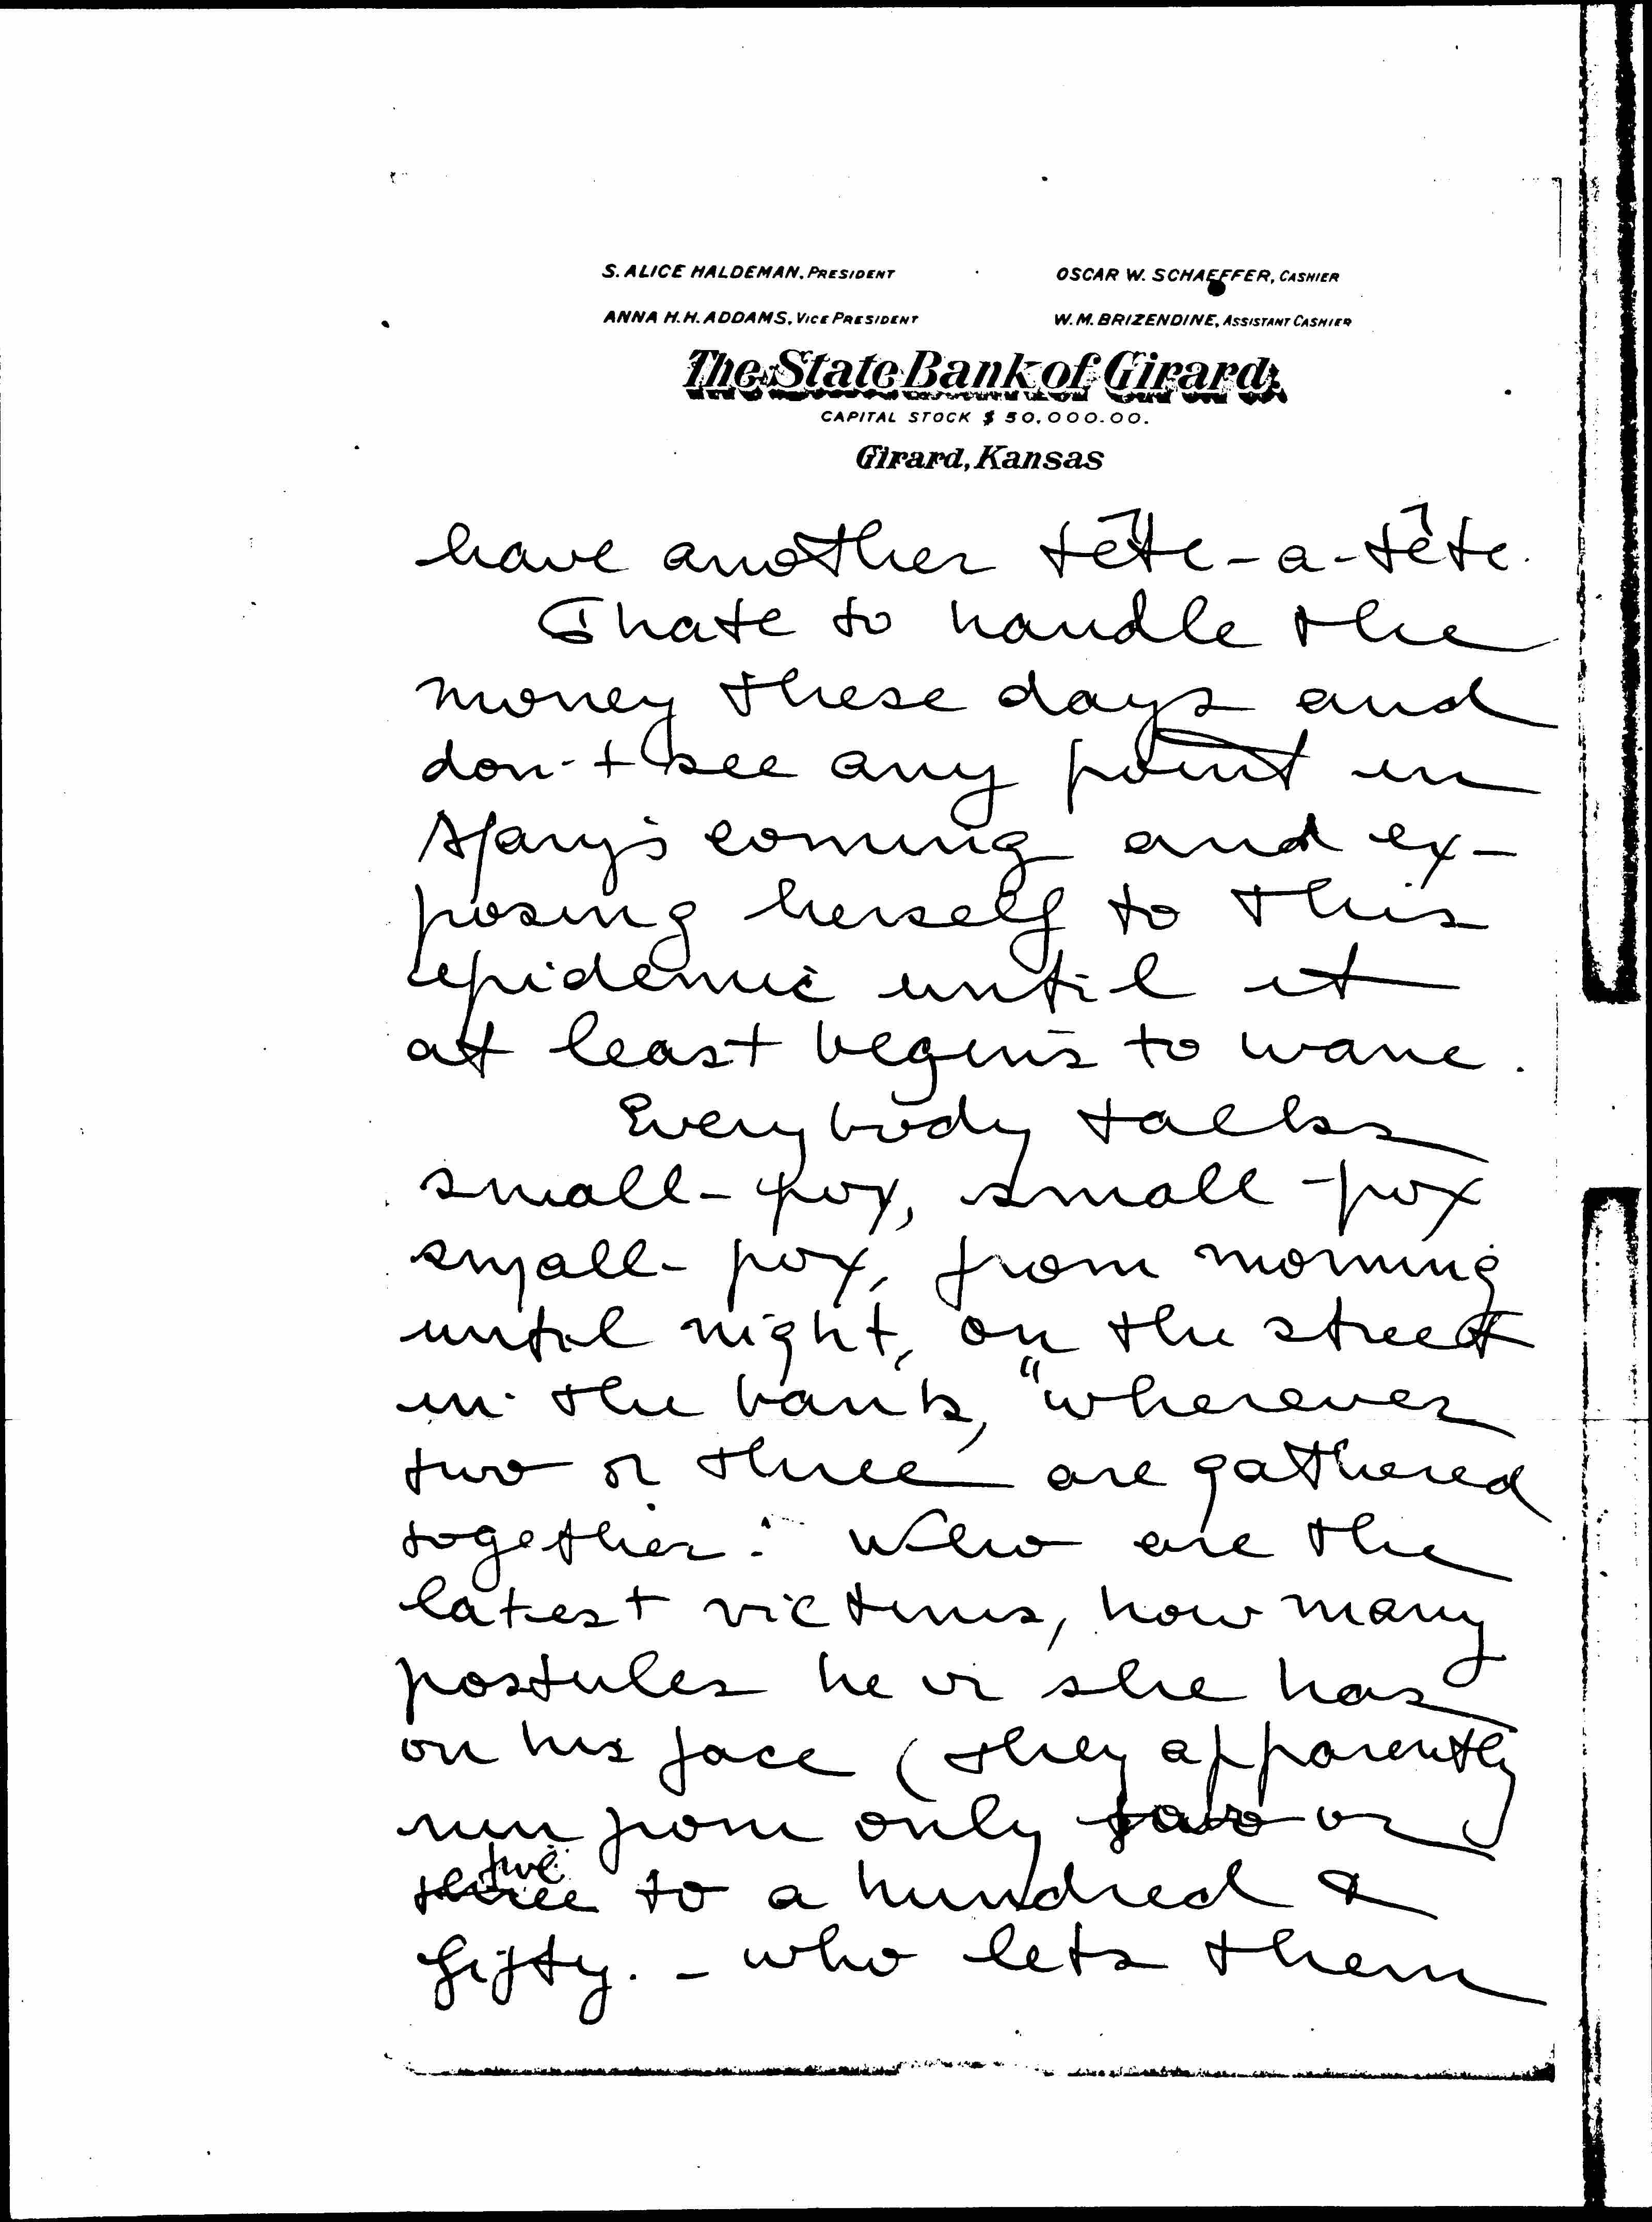 S. ALICE HALDEMAN, PRESIDENT
OSCAR W. SCHAEFFER, CASHIER
ANNA H. H. ADDAMS, VICE PRESIDENT
W. M. BRIZENDINE, ASSISTANT CASHIER
The State Bank of Girard,
CAPITAL STOCK $ 50,000.00.
Girard, Kansas
have another tête-a-tête.
I hate to handle the
money these days and
don't see any point in
Mary's coming and ex-
posing herself to this
epidemic until it
at least begins to wane.
Everybody talks
small-pox, small-pox
small-pox, from morning
until night, on the street
in the bank, "wherever
two or three are gathered
together." Who are the
latest victims, how many
postules he or she has
on his face (they apparently
run from only two or
five
three to a hundred &
fifty. - who lets them